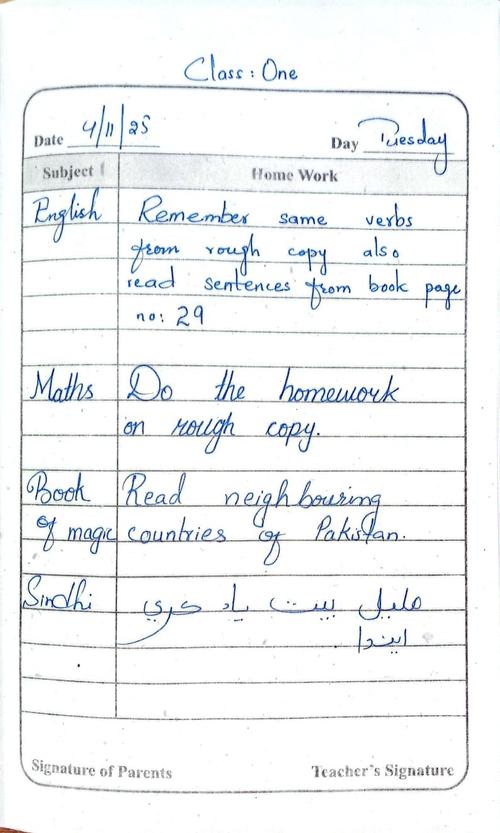 Class : One
Date 4/11/25 Day Tuesday
Subject Home Work
English Remember same verbs
from rough copy also
read sentences from book page
no: 29
Maths Do the homework
on rough copy.
Book Read neighbouring
of magic countries of Pakistan.
Sindhi مليل بيت ياد ڪري
ايندا
Signature of Parents Teacher's Signature